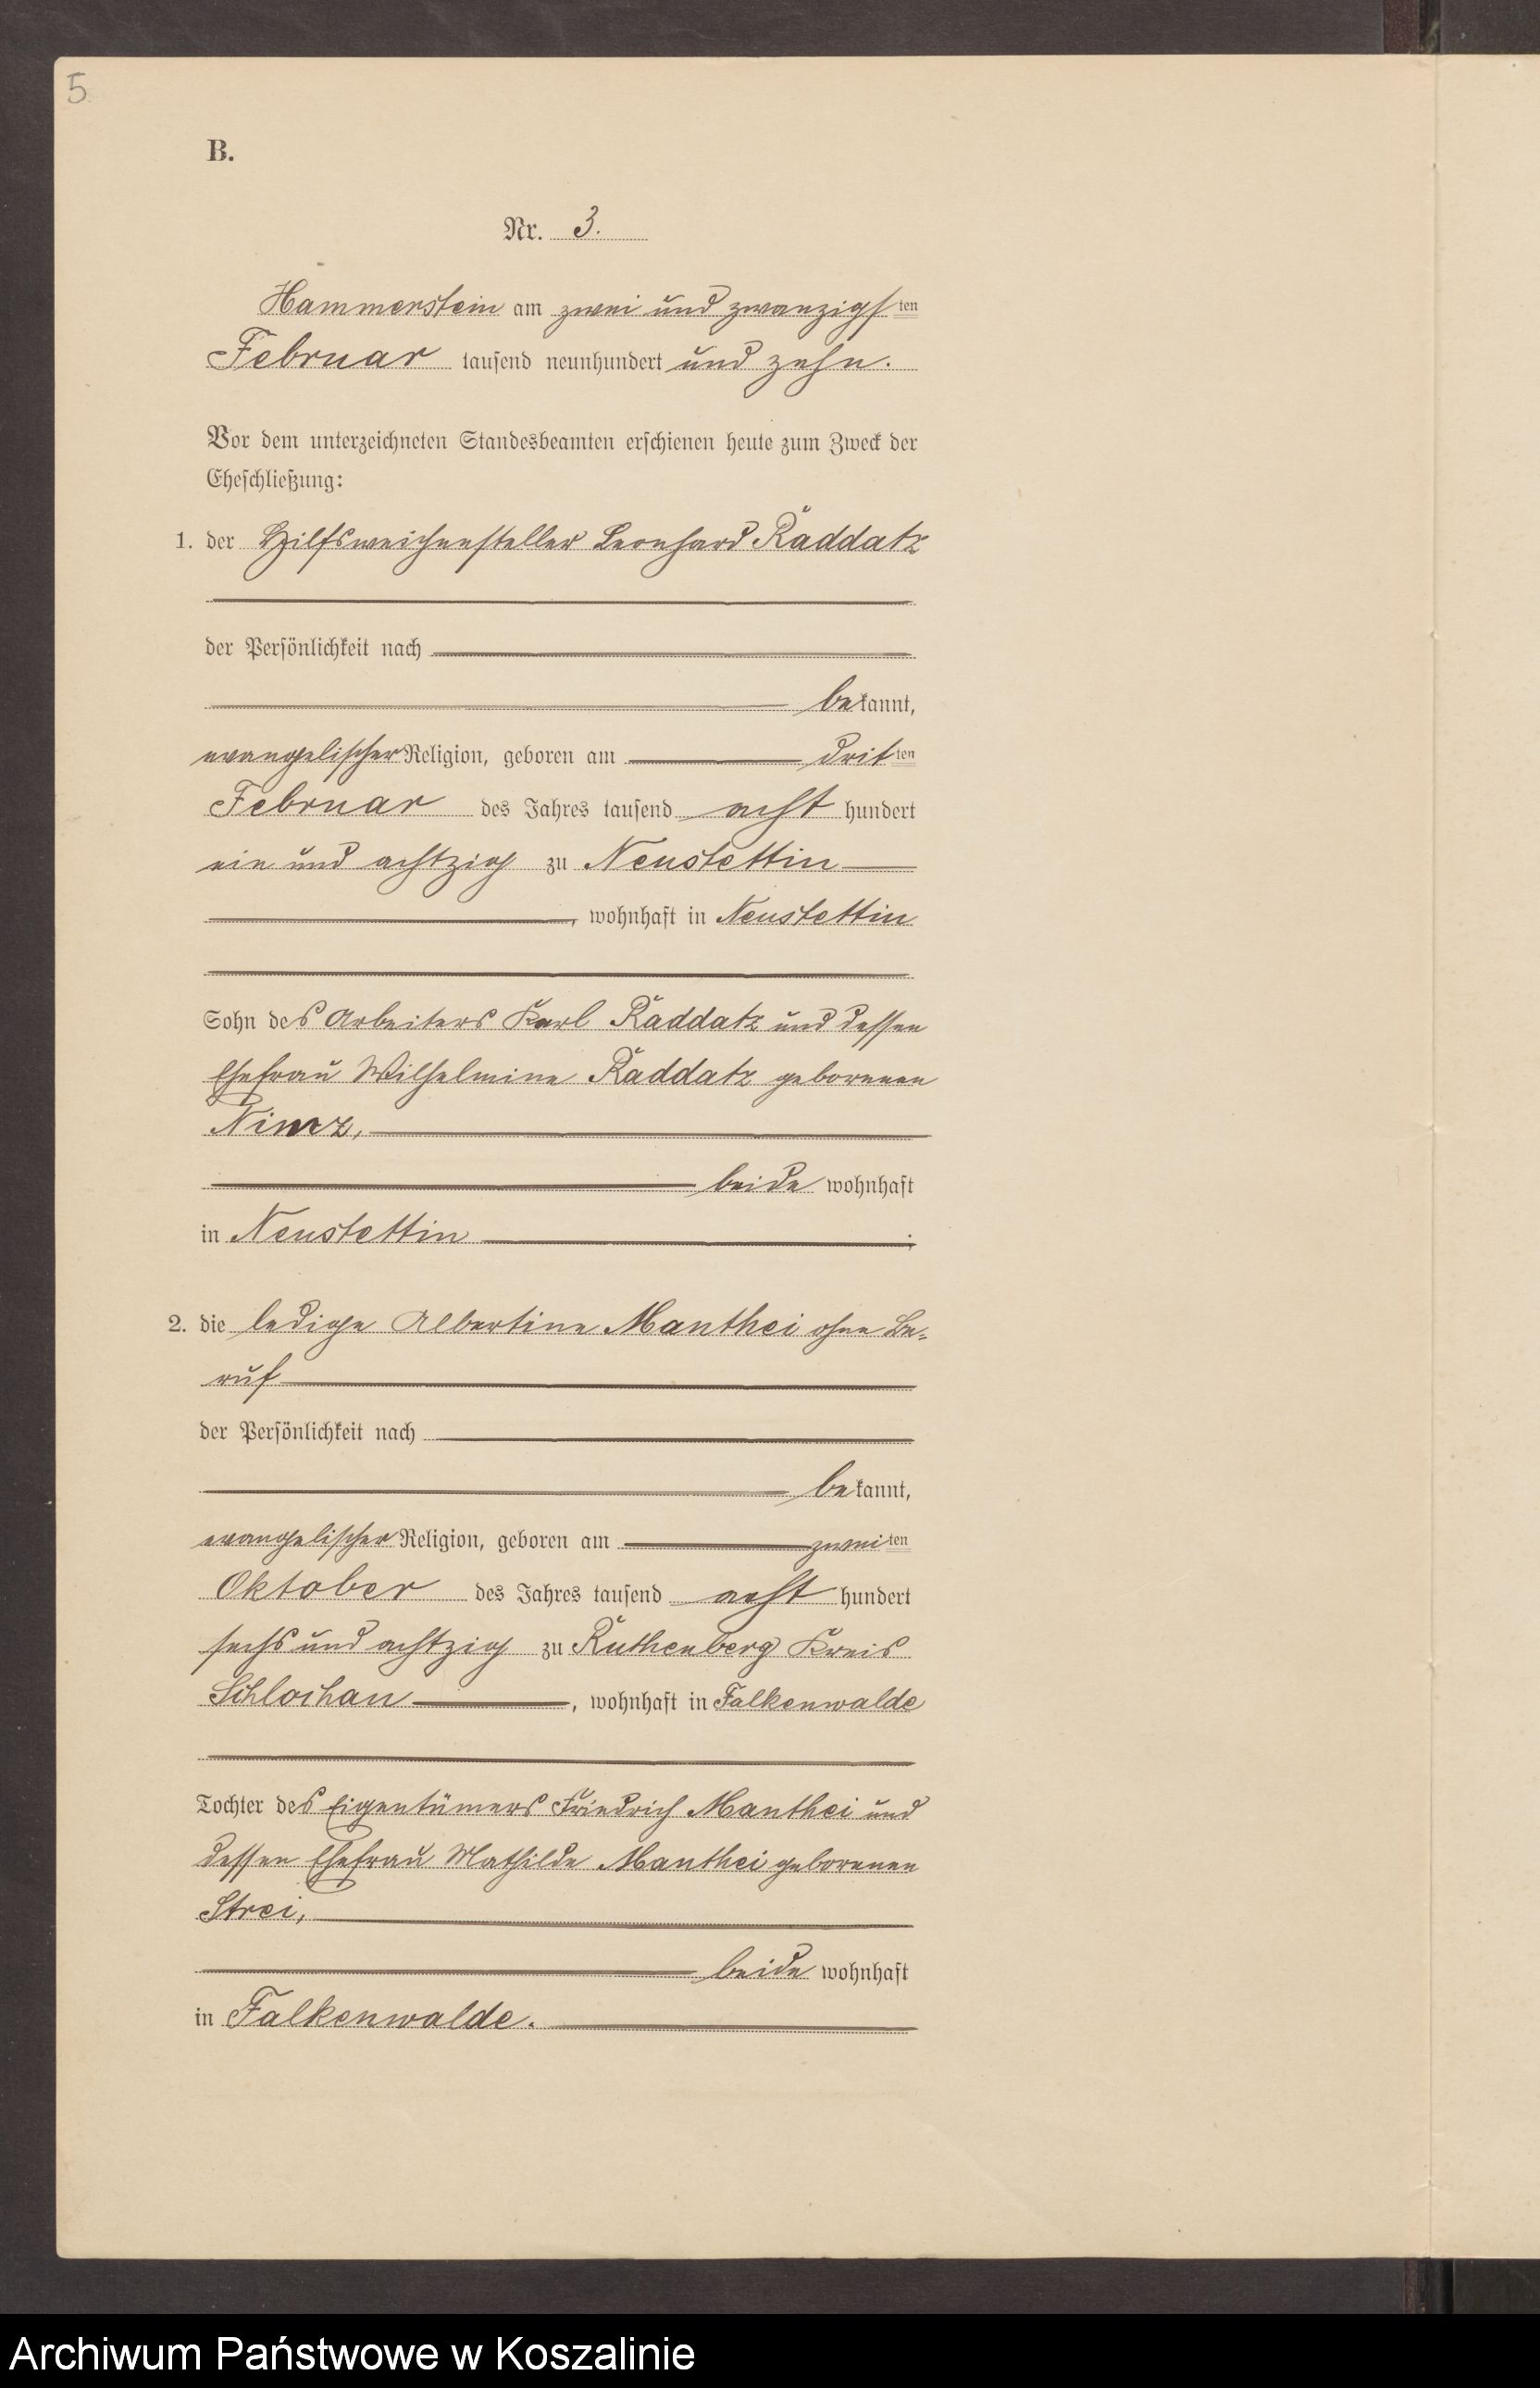 5
B.
Nr. 3.
Hammerstein am zwei und zwanzigsten
Februar tausend neunhundert und zehn.
Vor dem unterzeichneten Standesbeamten erschienen heute zum Zweck der
Eheschließung:
1. der Hilfsweichensteller Leonhard Raddatz
der Persönlichkeit nach
bekannt,
evangelischer Religion, geboren am dritten
Februar des Jahres tausend acht hundert
ein und achtzig zu Neustettin
, wohnhaft in Neustettin
Sohn des Arbeiters Karl Raddatz und dessen
Ehefrau Wilhelmine Raddatz geborenen
Nimz,
beide wohnhaft
in Neustettin ;
2. die ledige Albertine Manthei ohne Be-
ruf
der Persönlichkeit nach
bekannt,
evangelischer Religion, geboren am zweiten
Oktober des Jahres tausend acht hundert
sechs und achtzig zu Ruthenberg Kreis
Schlochau , wohnhaft in Falkenwalde
Tochter des Eigentümers Friedrich Manthei und
dessen Ehefrau Mathilde Manthei geborenen
Strei,
beide wohnhaft
in Falkenwalde.
Archiwum Państwowe w Koszalinie